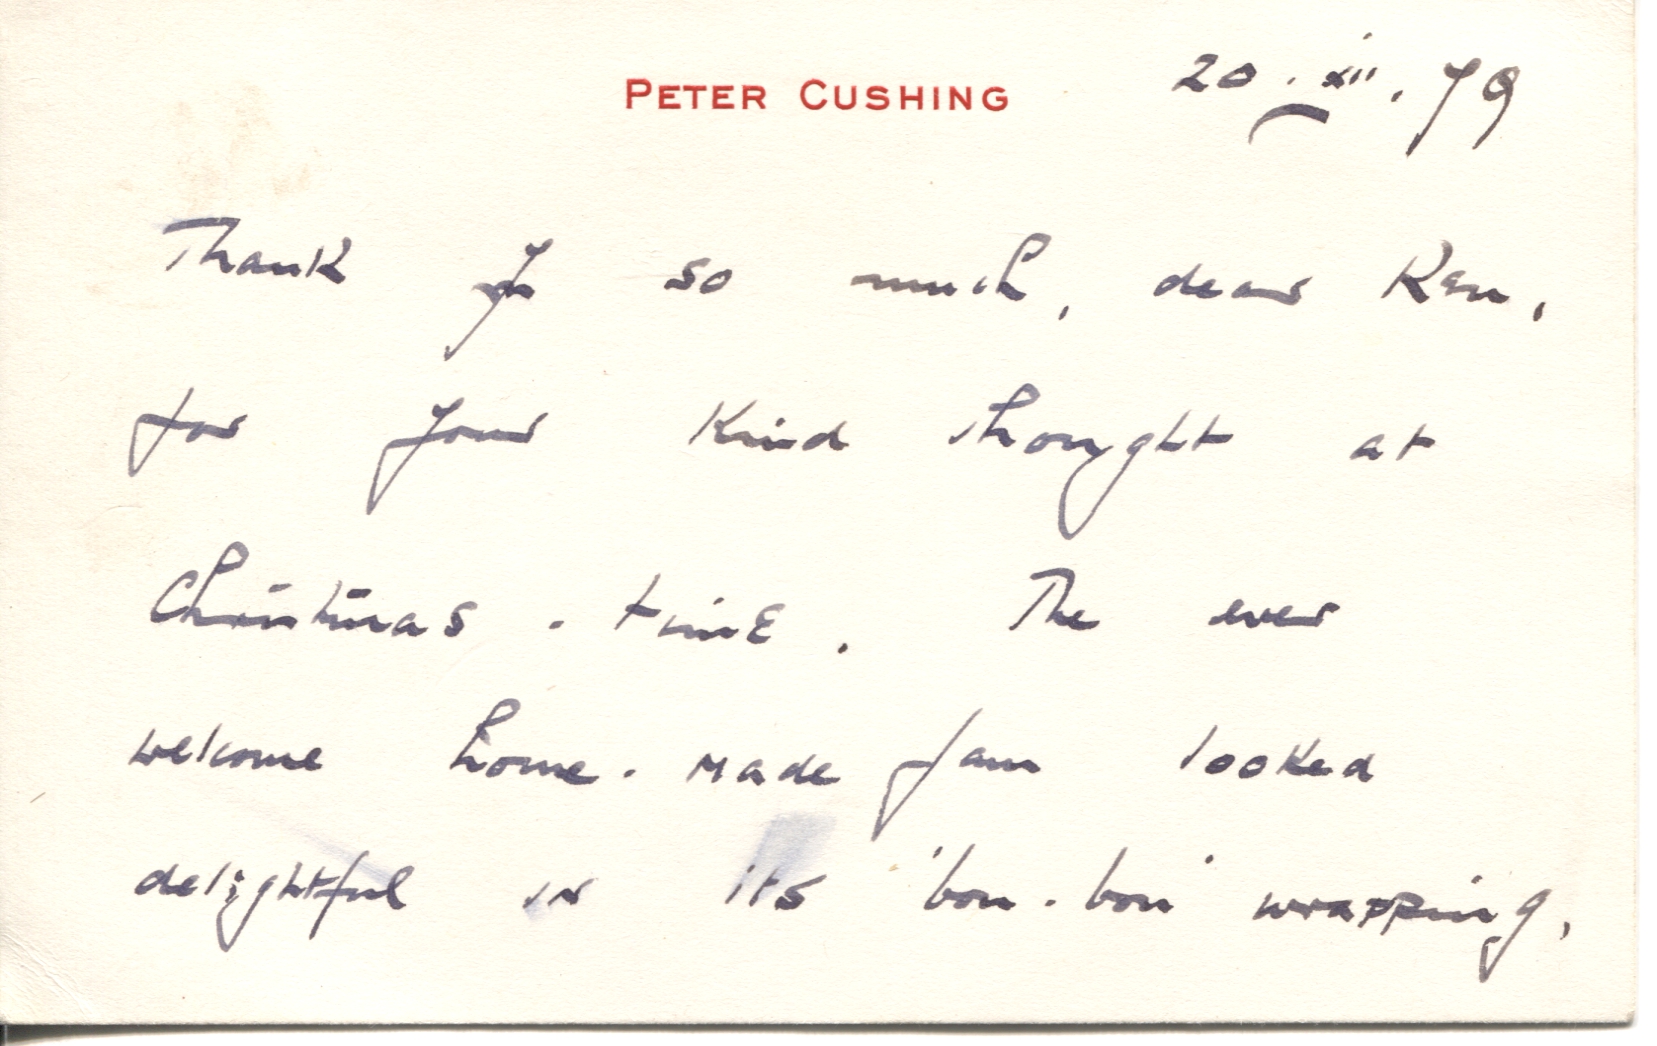 PETER CUSHING
20.xii.79
Thank you so much, dear Ken,
for your kind thought at
Christmas-time. The ever
welcome home-made jam looked
delightful in its 'bon-bon' wrapping,